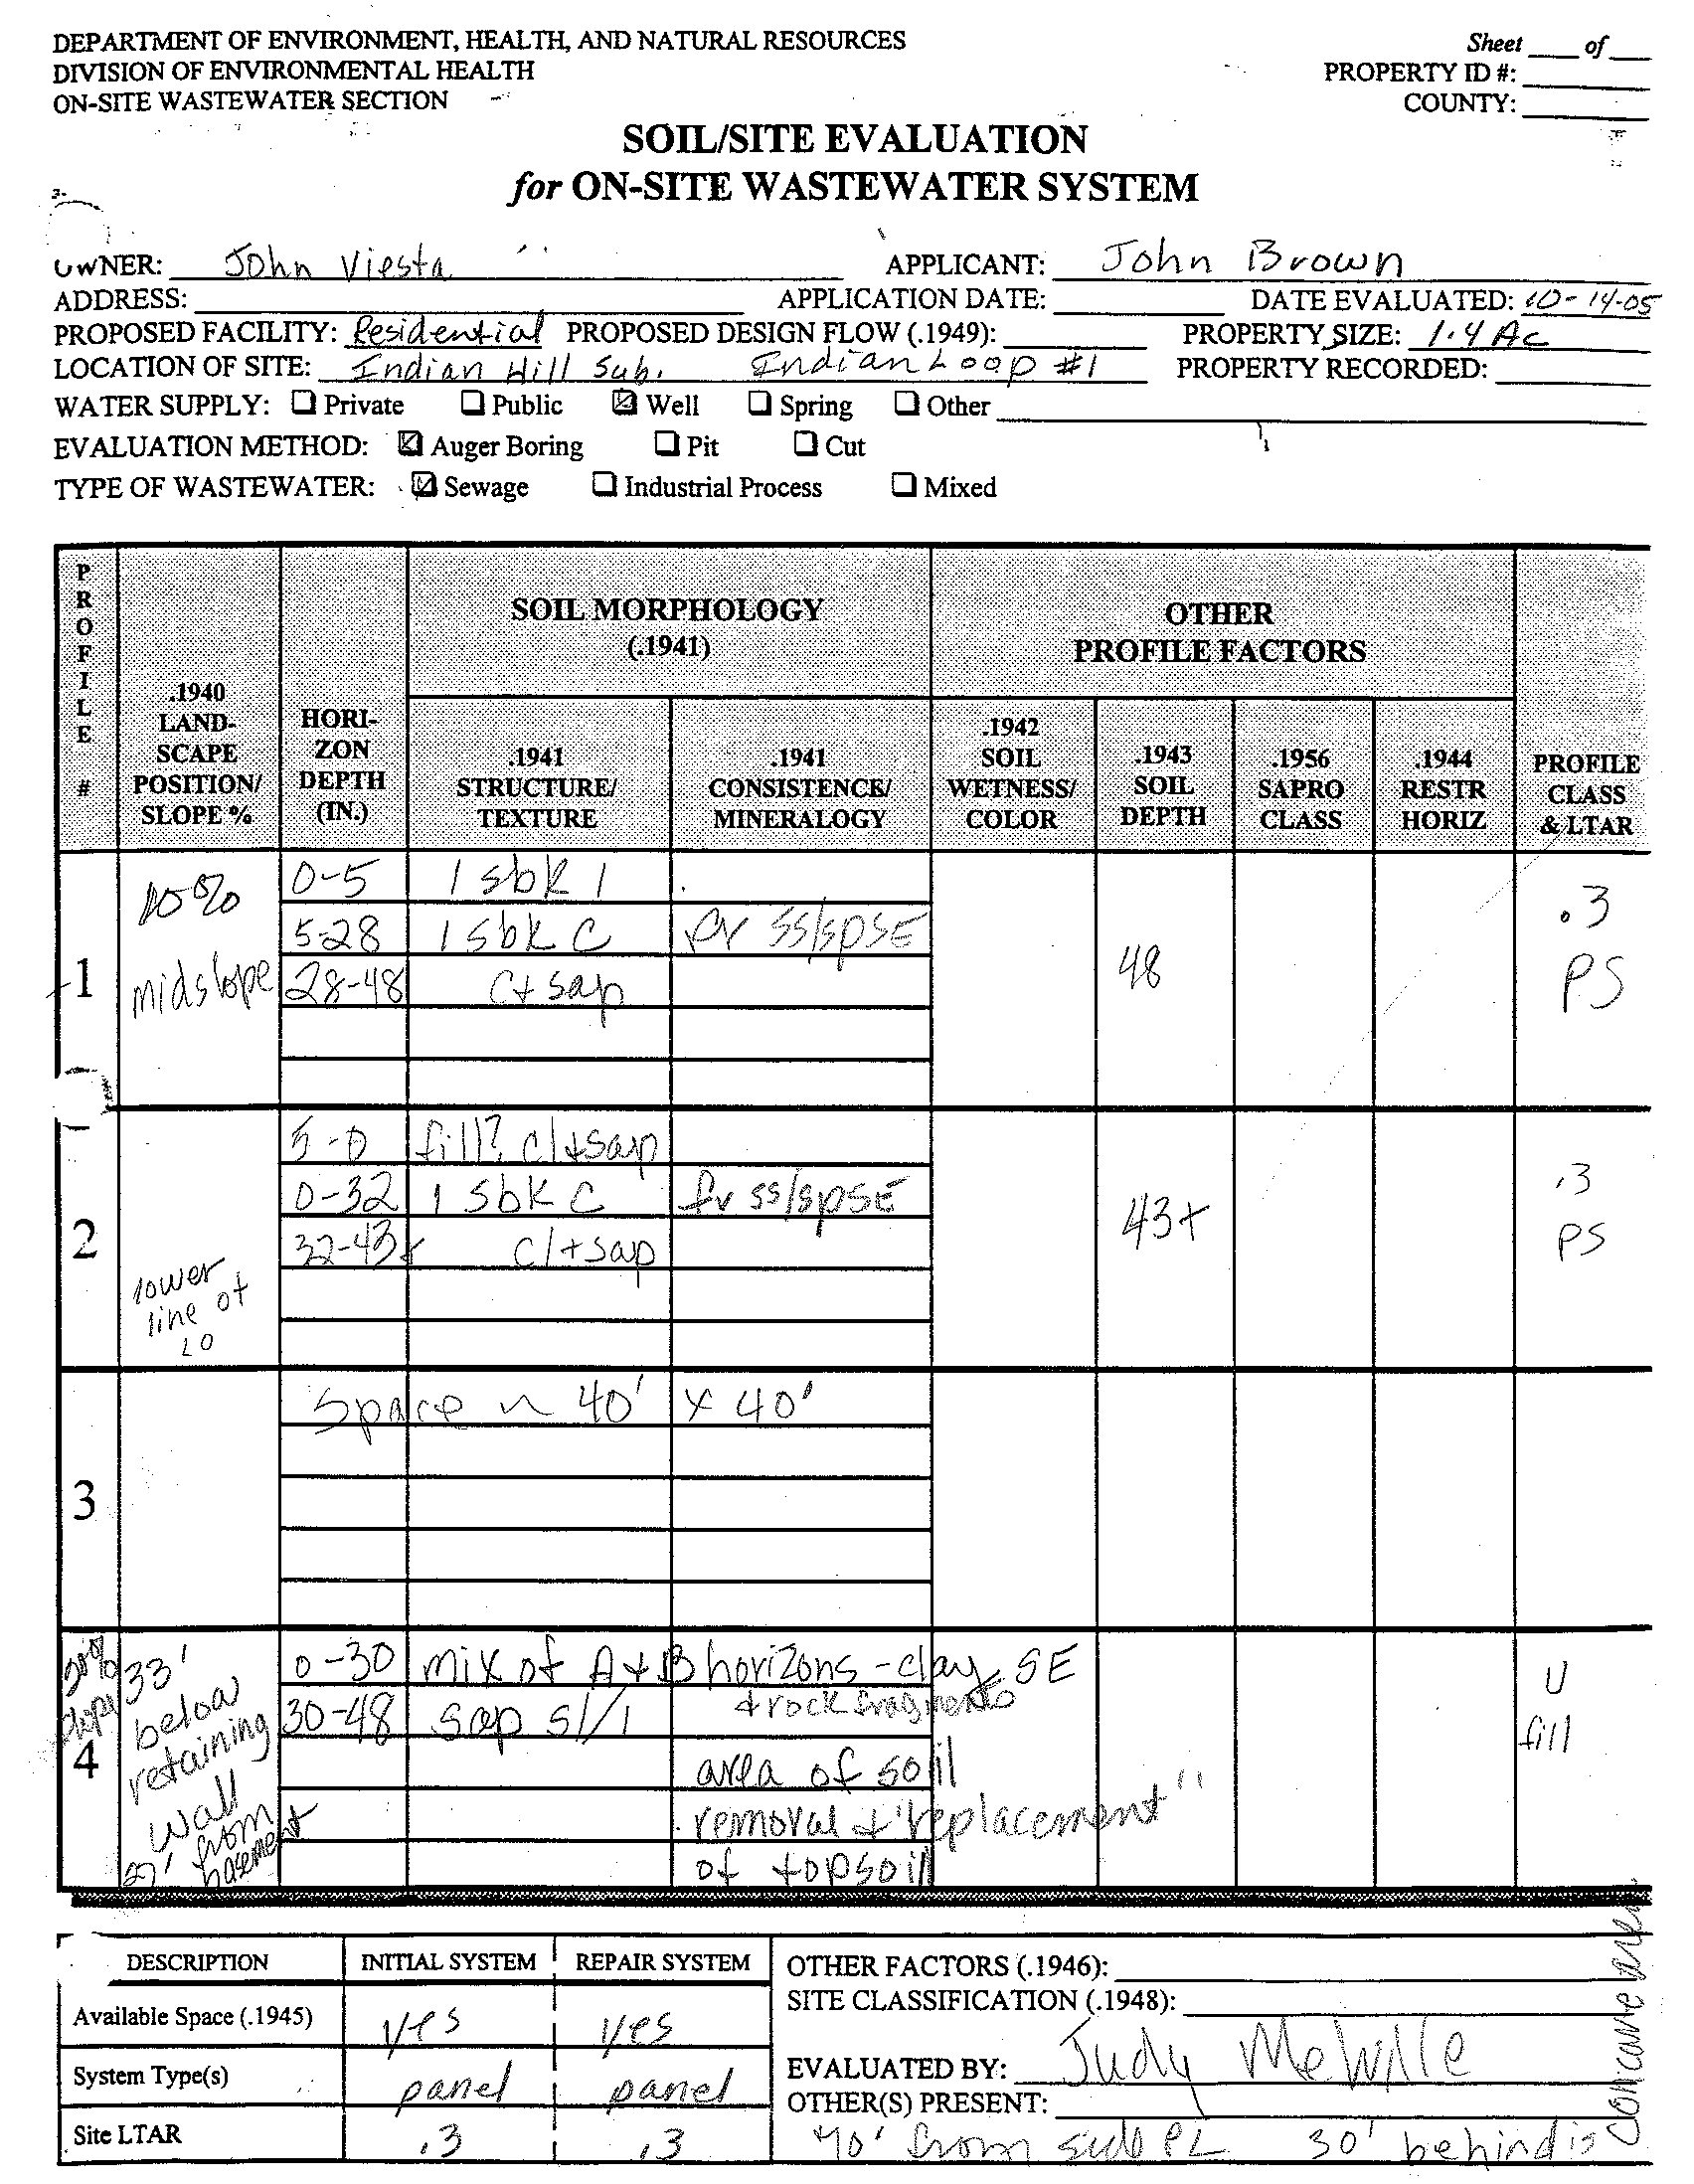 DEPARTMENT OF ENVIRONMENT, HEALTH, AND NATURAL RESOURCES
DIVISION OF ENVIRONMENTAL HEALTH
ON-SITE WASTEWATER SECTION
Sheet ____ of ____
PROPERTY ID #:
COUNTY:
SOIL/SITE EVALUATION
for ON-SITE WASTEWATER SYSTEM
OWNER: John Viesta APPLICANT: John Brown
ADDRESS: APPLICATION DATE: DATE EVALUATED: 10-14-05
PROPOSED FACILITY: Residential PROPOSED DESIGN FLOW (.1949): PROPERTY SIZE: 1.4 Ac
LOCATION OF SITE: Indian Hill Sub. Indian Loop #1 PROPERTY RECORDED:
WATER SUPPLY: ☐ Private ☐ Public ☑ Well ☐ Spring ☐ Other
EVALUATION METHOD: ☑ Auger Boring ☐ Pit ☐ Cut
TYPE OF WASTEWATER: ☑ Sewage ☐ Industrial Process ☐ Mixed
PROFILE #
.1940 LAND-SCAPE POSITION/ SLOPE %
HORI-ZON DEPTH (IN.)
SOIL MORPHOLOGY (.1941)
.1941 STRUCTURE/ TEXTURE
.1941 CONSISTENCE/ MINERALOGY
OTHER PROFILE FACTORS
.1942 SOIL WETNESS/ COLOR
.1943 SOIL DEPTH
.1956 SAPRO CLASS
.1944 RESTR HORIZ
PROFILE CLASS & LTAR
1
midslope
0-5 1 sbk l
5-28 1 sbk C fr ss/spSE
28-48 C+ sap
48
.3
PS
2
lower line of LO
5-0 fill? cl+sap
0-32 1 sbk C fr ss/spSE
32-43+ cl+sap
43+
.3
PS
3
Space ~ 40' x 40'
4
33' below retaining wall
27' from basement
0-30 mix of A+B horizons - clay, SE
+ rock fragments
30-48 sap sl/l
area of soil
removal + "replacement"
of topsoil
U
fill
DESCRIPTION INITIAL SYSTEM REPAIR SYSTEM
Available Space (.1945) yes yes
System Type(s) panel panel
Site LTAR .3 .3
OTHER FACTORS (.1946):
SITE CLASSIFICATION (.1948):
EVALUATED BY: Judy
OTHER(S) PRESENT:
from side PL 30' behind is
concave area